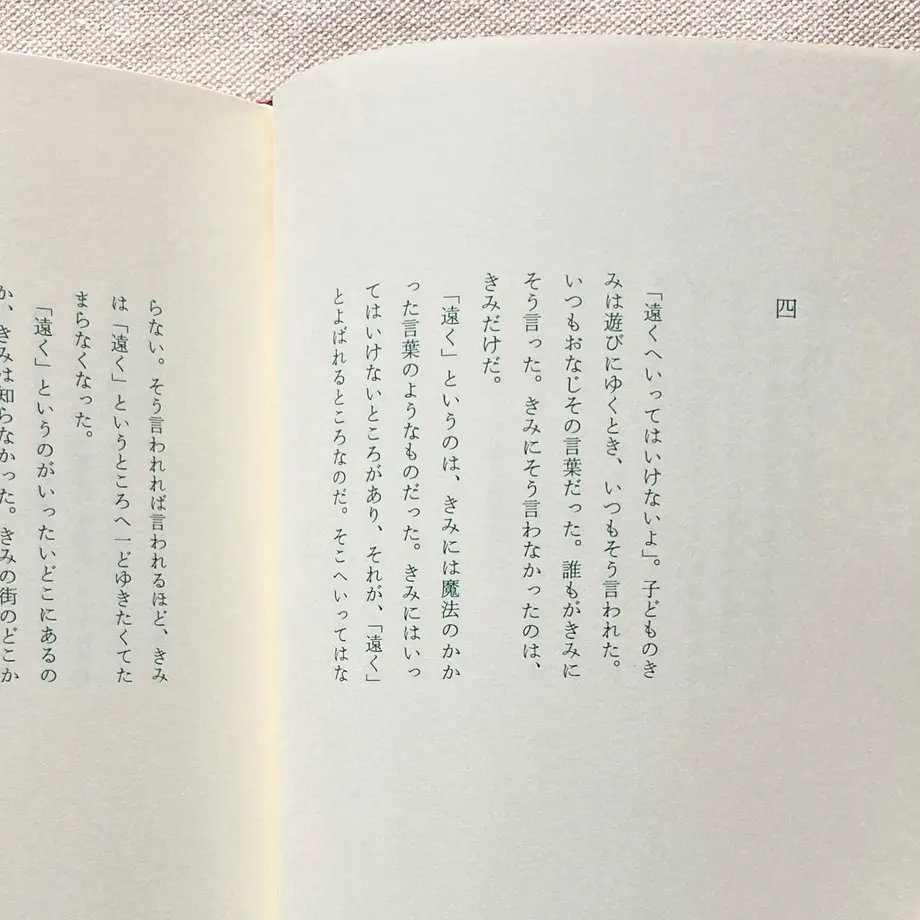 四
「遠くへいってはいけないよ」。子どものき
みは遊びにゆくとき、いつもそう言われた。
いつもおなじその言葉だった。誰もがきみに
そう言った。きみにそう言わなかったのは、
きみだけだ。
「遠く」というのは、きみには魔法のかか
った言葉のようなものだった。きみにはいっ
てはいけないところがあり、それが、「遠く」
とよばれるところなのだ。そこへいってはな
らない。そう言われれば言われるほど、きみ
は「遠く」というところへ一どゆきたくてた
まらなくなった。
「遠く」というのがいったいどこにあるの
か、きみは知らなかった。きみの街のどこか